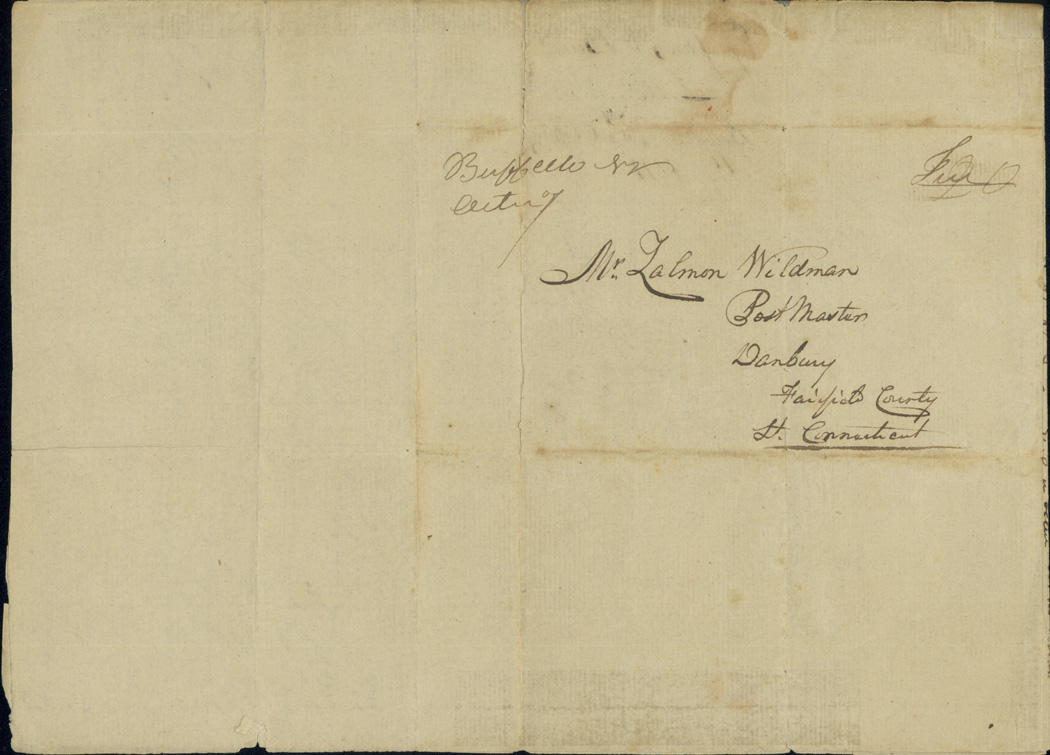 Buffello NY
Free
Mr. Zalmon Wildman
Post Master
Danbury
Fairfield County
St. Connecticut